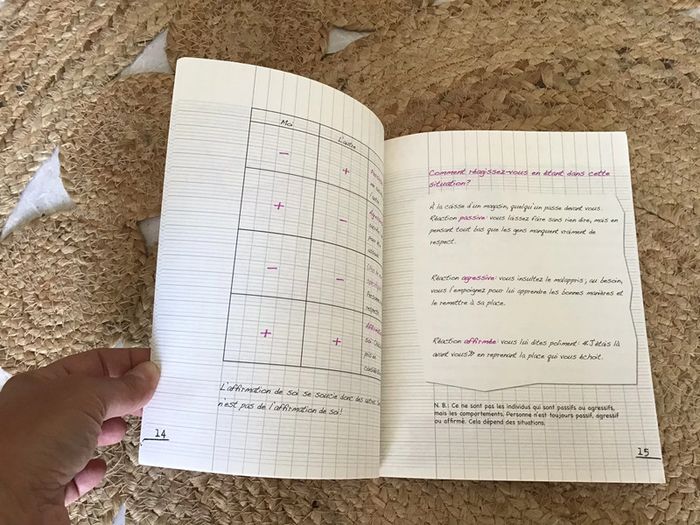 Moi L'autre
− +
+ −
− −
+ +
L'affirmation de soi se soucie donc des autres.
n'est pas de l'affirmation de soi!
14
Comment réagissez-vous en étant dans cette
situation?
À la caisse d'un magasin, quelqu'un passe devant vous.
Réaction passive: vous laissez faire sans rien dire, mais en
pensant tout bas que les gens manquent vraiment de
respect.
Réaction agressive: vous insultez le malappris; au besoin,
vous l'empoignez pour lui apprendre les bonnes manières et
le remettre à sa place.
Réaction affirmée: vous lui dites poliment: «J'étais là
avant vous» en reprenant la place qui vous échoit.
N. B.: Ce ne sont pas les individus qui sont passifs ou agressifs,
mais les comportements. Personne n'est toujours passif, agressif
ou affirmé. Cela dépend des situations.
15